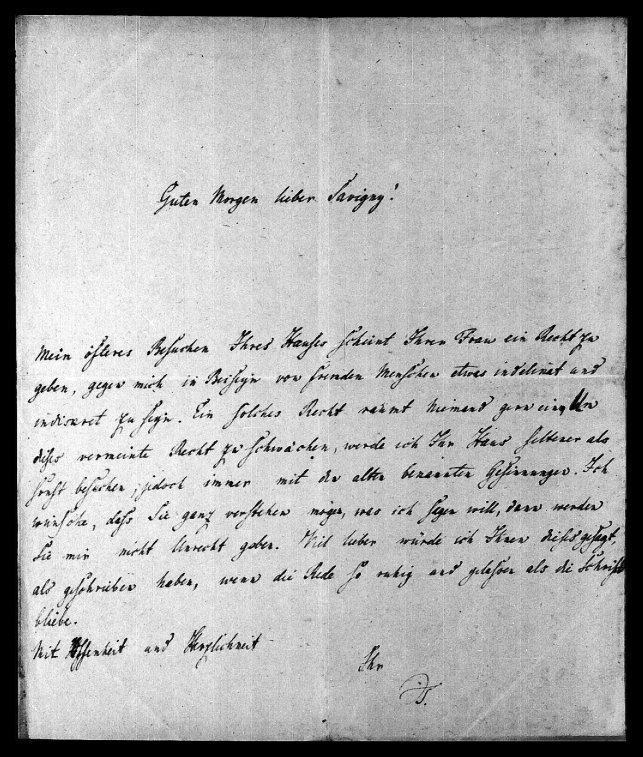 Guten Morgen lieber Savigny!
Mein öfteres Besuchen Ihres Hauses scheint Ihrer Frau ein Recht zu
geben, gegen mich in Beiseyn von fremden Menschen etwas indelicat und
indiscret zu seyn. Ein solches Recht räumt Niemand gern ein, Um
dieses vermeinte Recht zu schwächen, werde ich Ihr Haus seltener als
sonst besuchen, jedoch immer mit den alten Gesinnungen. Ich
wünsche, dass Sie ganz verstehen mögen, was ich sagen will, dann werden
Sie mir nicht Unrecht geben. Viel lieber würde ich Ihnen dieses gesagt,
als geschrieben haben, wenn die Rede so ruhig und gelassen als die Schrift
bliebe.
Mit Offenheit und Herzlichkeit
Ihr